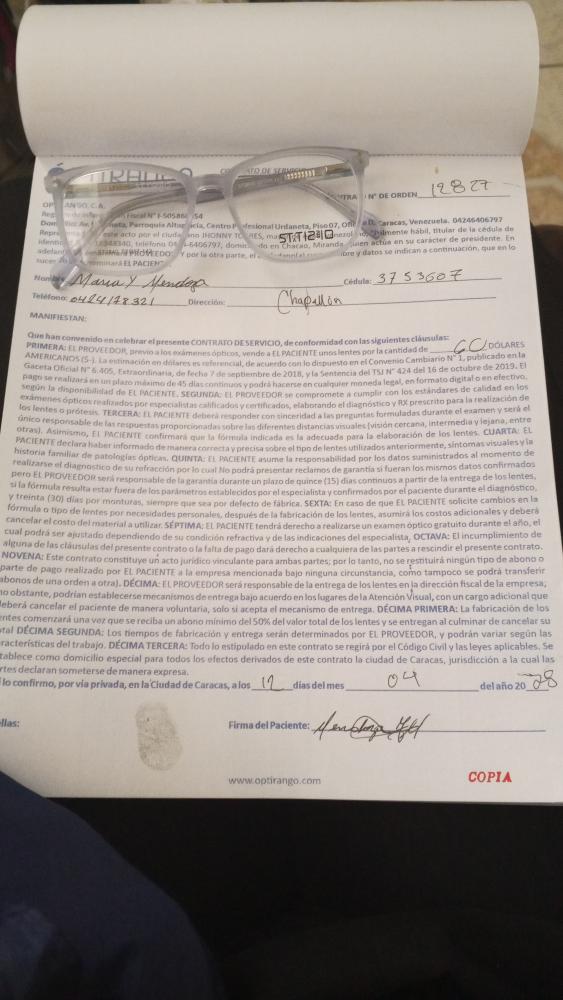 OPTIRANGO CONTRATO DE SERVICIO
N° DE ORDEN 12827
OPTIRANGO, C.A.
Parroquia Altagracia, Centro Profesional Urdaneta, Piso 07, Caracas, Venezuela. 04246406797
este acto por el ciudadano JHONNY TORRES, hábilmente hábil, titular de la cédula de
teléfono 04246406797, en Chacao, Miranda, quien actúa en su carácter de presidente. En
PROVEEDOR Y por la otra parte, el y datos se indican a continuación, que en lo
EL PACIENTE
Nombre: Maria Y Mendoza Cédula: 3753607
Teléfono: 0424178321 Dirección: Chapellín
MANIFIESTAN:
Que han convenido en celebrar el presente CONTRATO DE SERVICIO, de conformidad con las siguientes cláusulas:
PRIMERA: EL PROVEEDOR, previo a los exámenes ópticos, vende a EL PACIENTE unos lentes por la cantidad de DÓLARES
AMERICANOS ($-). La estimación en dólares es referencial, de acuerdo con lo dispuesto en el Convenio Cambiario N° 1, publicado en la
Gaceta Oficial N° 6.405, Extraordinaria, de fecha 7 de septiembre de 2018, y la Sentencia del TSJ N° 424 del 16 de octubre de 2019. El
pago se realizará en un plazo máximo de 45 días continuos y podrá hacerse en cualquier moneda legal, en formato digital o en efectivo,
según la disponibilidad de EL PACIENTE. SEGUNDA: EL PROVEEDOR se compromete a cumplir con los estándares de calidad en los
exámenes ópticos realizados por especialistas calificados y certificados, elaborando el diagnóstico y RX prescrito para la realización de
los lentes o prótesis. TERCERA: EL PACIENTE deberá responder con sinceridad a las preguntas formuladas durante el examen y será el
único responsable de las respuestas proporcionadas sobre las diferentes distancias visuales (visión cercana, intermedia y lejana, entre
otras). Asimismo, EL PACIENTE confirmará que la fórmula indicada es la adecuada para la elaboración de los lentes. CUARTA: EL
PACIENTE declara haber informado de manera correcta y precisa sobre el tipo de lentes utilizados anteriormente, síntomas visuales y la
historia familiar de patologías ópticas. QUINTA: EL PACIENTE asume la responsabilidad por los datos suministrados al momento de
realizarse el diagnostico de su refracción por lo cual No podrá presentar reclamos de garantía si fueran los mismos datos confirmados
pero EL PROVEEDOR será responsable de la garantía durante un plazo de quince (15) días continuos a partir de la entrega de los lentes,
si la fórmula resulta estar fuera de los parámetros establecidos por el especialista y confirmados por el paciente durante el diagnóstico,
y treinta (30) días por monturas, siempre que sea por defecto de fábrica. SEXTA: En caso de que EL PACIENTE solicite cambios en la
fórmula o tipo de lentes por necesidades personales, después de la fabricación de los lentes, asumirá los costos adicionales y deberá
cancelar el costo del material a utilizar. SÉPTIMA: EL PACIENTE tendrá derecho a realizarse un examen óptico gratuito durante el año, el
cual podrá ser ajustado dependiendo de su condición refractiva y de las indicaciones del especialista, OCTAVA: El incumplimiento de
alguna de las cláusulas del presente contrato o la falta de pago dará derecho a cualquiera de las partes a rescindir el presente contrato.
NOVENA: Este contrato constituye un acto jurídico vinculante para ambas partes; por lo tanto, no se restituirá ningún tipo de abono o
parte de pago realizado por EL PACIENTE a la empresa mencionada bajo ninguna circunstancia, como tampoco se podrá transferir
abonos de una orden a otra). DÉCIMA: EL PROVEEDOR será responsable de la entrega de los lentes en la dirección fiscal de la empresa;
no obstante, podrían establecerse mecanismos de entrega bajo acuerdo en los lugares de la Atención Visual, con un cargo adicional que
deberá cancelar el paciente de manera voluntaria, solo si acepta el mecanismo de entrega. DÉCIMA PRIMERA: La fabricación de los
entes comenzará una vez que se reciba un abono mínimo del 50% del valor total de los lentes y se entregan al culminar de cancelar su
tal DÉCIMA SEGUNDA: Los tiempos de fabricación y entrega serán determinados por EL PROVEEDOR, y podrán variar según las
racterísticas del trabajo. DÉCIMA TERCERA: Todo lo estipulado en este contrato se regirá por el Código Civil y las leyes aplicables. Se
tablece como domicilio especial para todos los efectos derivados de este contrato la ciudad de Caracas, jurisdicción a la cual las
rtes declaran someterse de manera expresa.
lo confirmo, por vía privada, en la Ciudad de Caracas, a los 12 días del mes 04 del año 20
llas: Firma del Paciente:
www.optirango.com COPIA